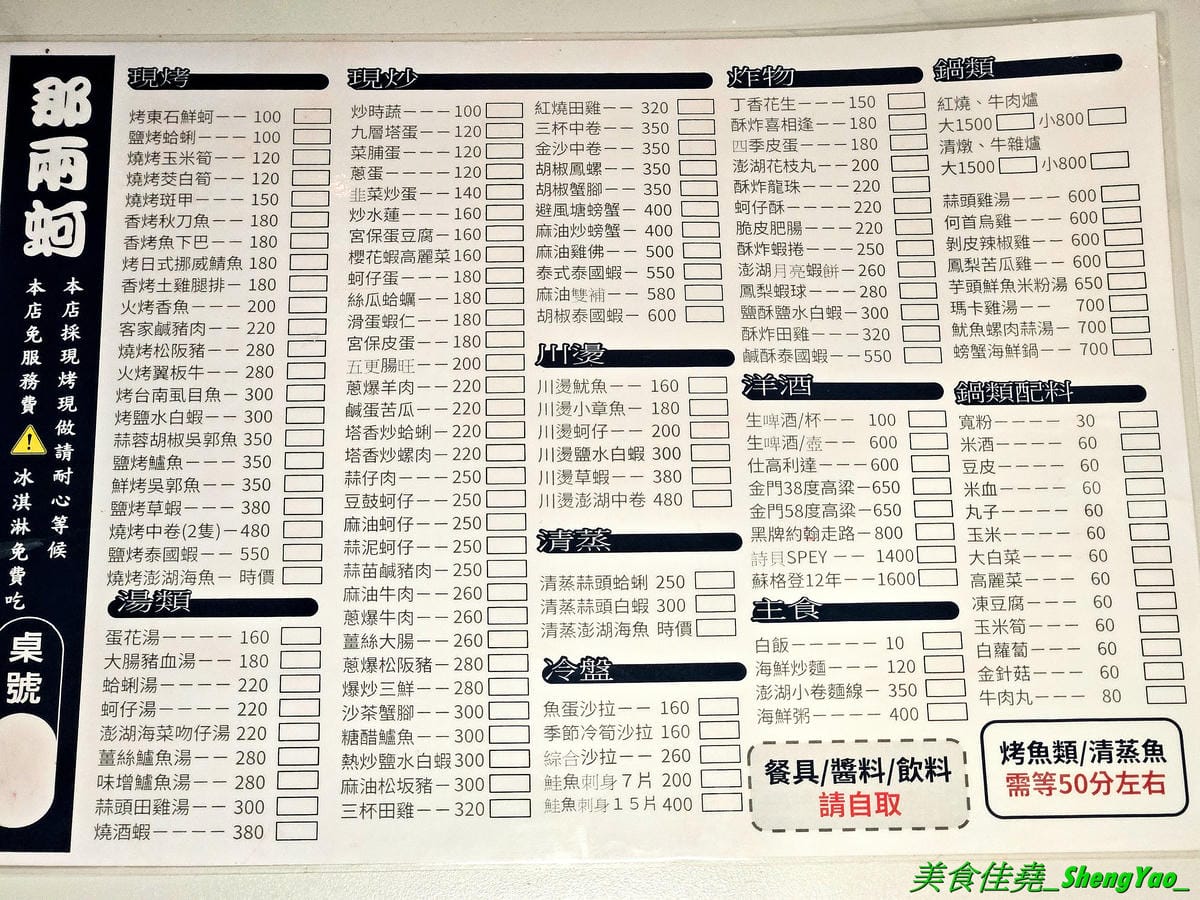 那兩蚵
本店採現烤現做請耐心等候
本店免服務費 ! 冰淇淋免費吃
桌號
現烤
烤東石鮮蚵—— 100
鹽烤蛤蜊—— 100
燒烤玉米筍—— 120
燒烤茭白筍—— 120
燒烤斑甲—— 150
香烤秋刀魚— 180
香烤魚下巴— 180
烤日式挪威鯖魚 180
香烤土雞腿排— 180
火烤香魚—— 200
客家鹹豬肉— 220
燒烤松阪豬— 280
火烤翼板牛— 280
烤台南虱目魚— 300
烤鹽水白蝦— 300
蒜蓉胡椒吳郭魚 350
鹽烤鱸魚—— 350
鮮烤吳郭魚— 350
鹽烤草蝦—— 380
燒烤中卷(2隻)—480
鹽烤泰國蝦—— 550
燒烤澎湖海魚— 時價
湯類
蛋花湯———— 160
大腸豬血湯—— 180
蛤蜊湯——— 220
蚵仔湯——— 220
澎湖海菜吻仔湯 220
薑絲鱸魚湯—— 280
味增鱸魚湯—— 280
蒜頭田雞湯—— 300
燒酒蝦———— 380
現炒
炒時蔬———100
九層塔蛋——120
菜脯蛋———120
蔥蛋————120
韭菜炒蛋——140
炒水蓮———160
宮保蛋豆腐—160
櫻花蝦高麗菜160
蚵仔蛋———180
絲瓜蛤蠣——180
滑蛋蝦仁——180
宮保皮蛋——180
五更腸旺——200
蔥爆羊肉——220
鹹蛋苦瓜——220
塔香炒蛤蜊—220
塔香炒螺肉—220
蒜仔肉———250
豆鼓蚵仔——250
麻油蚵仔——250
蒜泥蚵仔——250
蒜苗鹹豬肉—250
麻油牛肉——260
蔥爆牛肉——260
薑絲大腸——260
蔥爆松阪豬—280
爆炒三鮮——280
沙茶蟹腳——300
糖醋鱸魚——300
熱炒鹽水白蝦300
麻油松坂豬—300
三杯田雞——320
紅燒田雞—— 320
三杯中卷—— 350
金沙中卷—— 350
胡椒鳳螺—— 350
胡椒蟹腳—— 350
避風塘螃蟹— 400
麻油炒螃蟹— 400
麻油雞佛—— 500
泰式泰國蝦— 550
麻油雙補—— 580
胡椒泰國蝦— 600
川燙
川燙魷魚—— 160
川燙小章魚— 180
川燙蚵仔—— 200
川燙鹽水白蝦 300
川燙草蝦—— 380
川燙澎湖中卷 480
清蒸
清蒸蒜頭蛤蜊 250
清蒸蒜頭白蝦 300
清蒸澎湖海魚 時價
冷盤
魚蛋沙拉—— 160
季節冷筍沙拉 160
綜合沙拉—— 260
鮭魚刺身７片 200
鮭魚刺身１５片400
炸物
丁香花生———150
酥炸喜相逢——180
四季皮蛋———180
澎湖花枝丸——200
酥炸龍珠——— 220
蚵仔酥———— 220
脆皮肥腸——— 220
酥炸蝦捲——— 250
澎湖月亮蝦餅—260
鳳梨蝦球——— 280
鹽酥鹽水白蝦—300
酥炸田雞——— 320
鹹酥泰國蝦——550
洋酒
生啤酒/杯—— 100
生啤酒/壺—— 600
仕高利達———600
金門38度高粱—650
金門58度高粱—650
黑牌約翰走路—800
詩貝SPEY — 1400
蘇格登12年——1600
主食
白飯———— 10
海鮮炒麵——— 120
澎湖小卷麵線— 350
海鮮粥——— 400
餐具/醬料/飲料
請自取
鍋類
紅燒、牛肉爐
大1500 小800
清燉、牛雜爐
大1500 小800
蒜頭雞湯——— 600
何首烏雞——— 600
剝皮辣椒雞—— 600
鳳梨苦瓜雞—— 600
芋頭鮮魚米粉湯 650
瑪卡雞湯—— 700
魷魚螺肉蒜湯— 700
螃蟹海鮮鍋—— 700
鍋類配料
寬粉———— 30
米酒———— 60
豆皮———— 60
米血———— 60
丸子———— 60
玉米———— 60
大白菜——— 60
高麗菜——— 60
凍豆腐——— 60
玉米筍——— 60
白蘿蔔——— 60
金針菇——— 60
牛肉丸——— 80
烤魚類/清蒸魚
需等50分左右
美食佳堯_ShengYao_